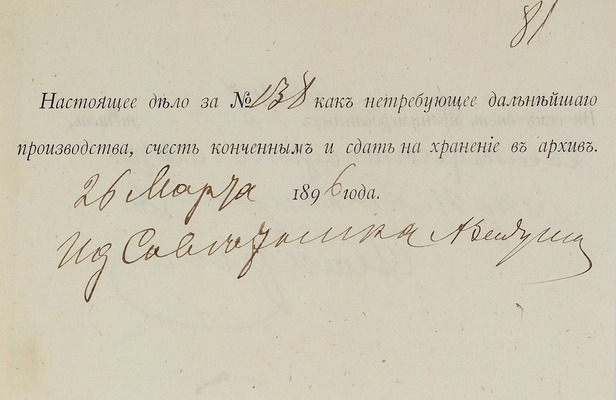 81
Настоящее дѣло за № 138 какъ нетребующее дальнѣйшаго
производства, счесть конченнымъ и сдать на храненіе въ архивъ.
26 Марта 1896 года.
Ид Совѣтника